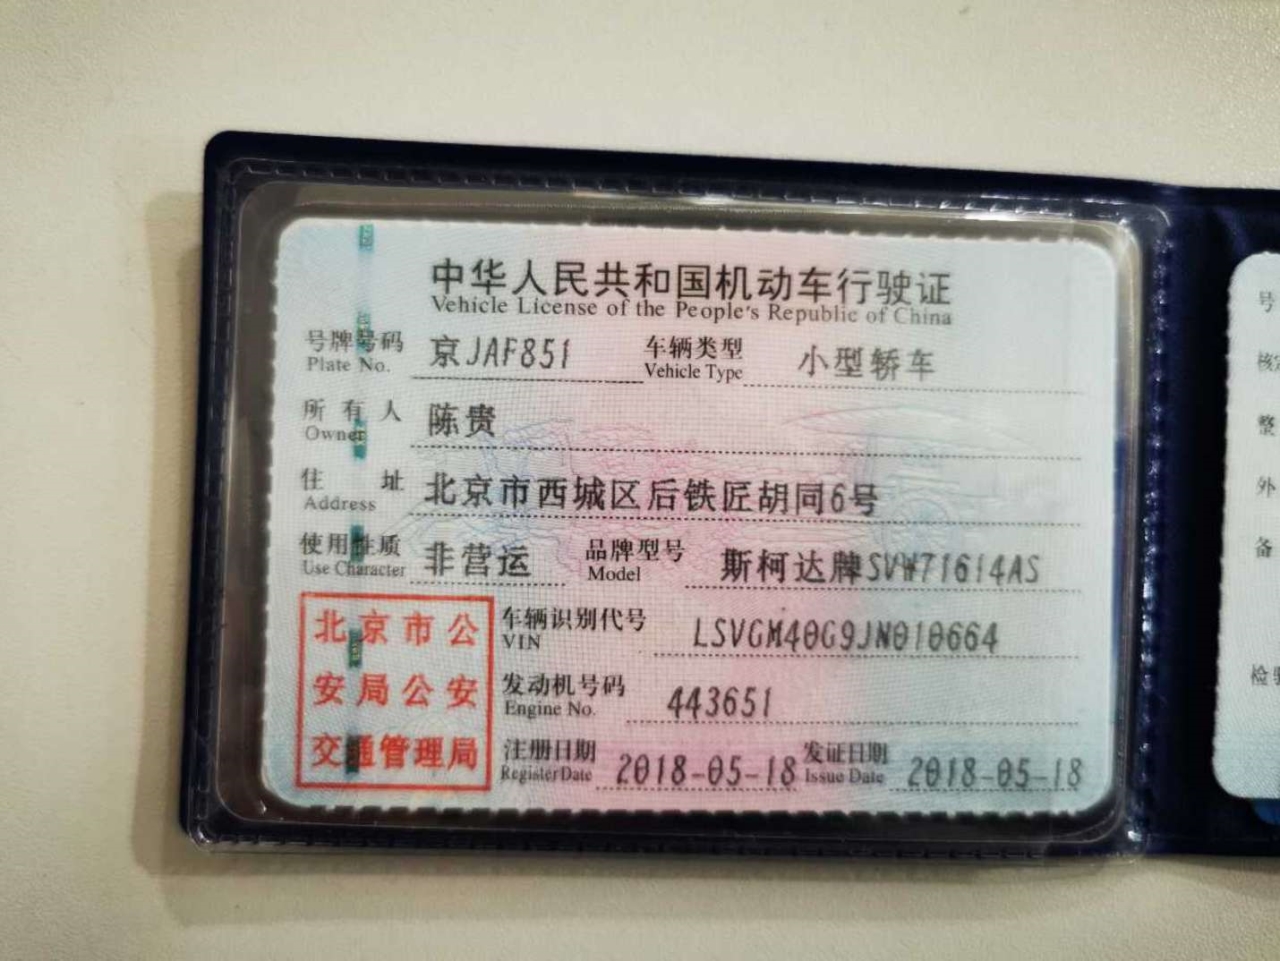 中华人民共和国机动车行驶证
Vehicle License of the People's Republic of China
号牌号码 京JAF851 车辆类型 小型轿车
Plate No. Vehicle Type
所有人 陈贵
Owner
住址 北京市西城区后铁匠胡同6号
Address
使用性质 非营运 品牌型号 斯柯达牌SVW71614AS
Use Character Model
北京市公
安局公安
交通管理局
车辆识别代号 LSVGM40G9JN010664
VIN
发动机号码 443651
Engine No.
注册日期 2018-05-18 发证日期 2018-05-18
Register Date Issue Date
号
核
整
外
备
检验